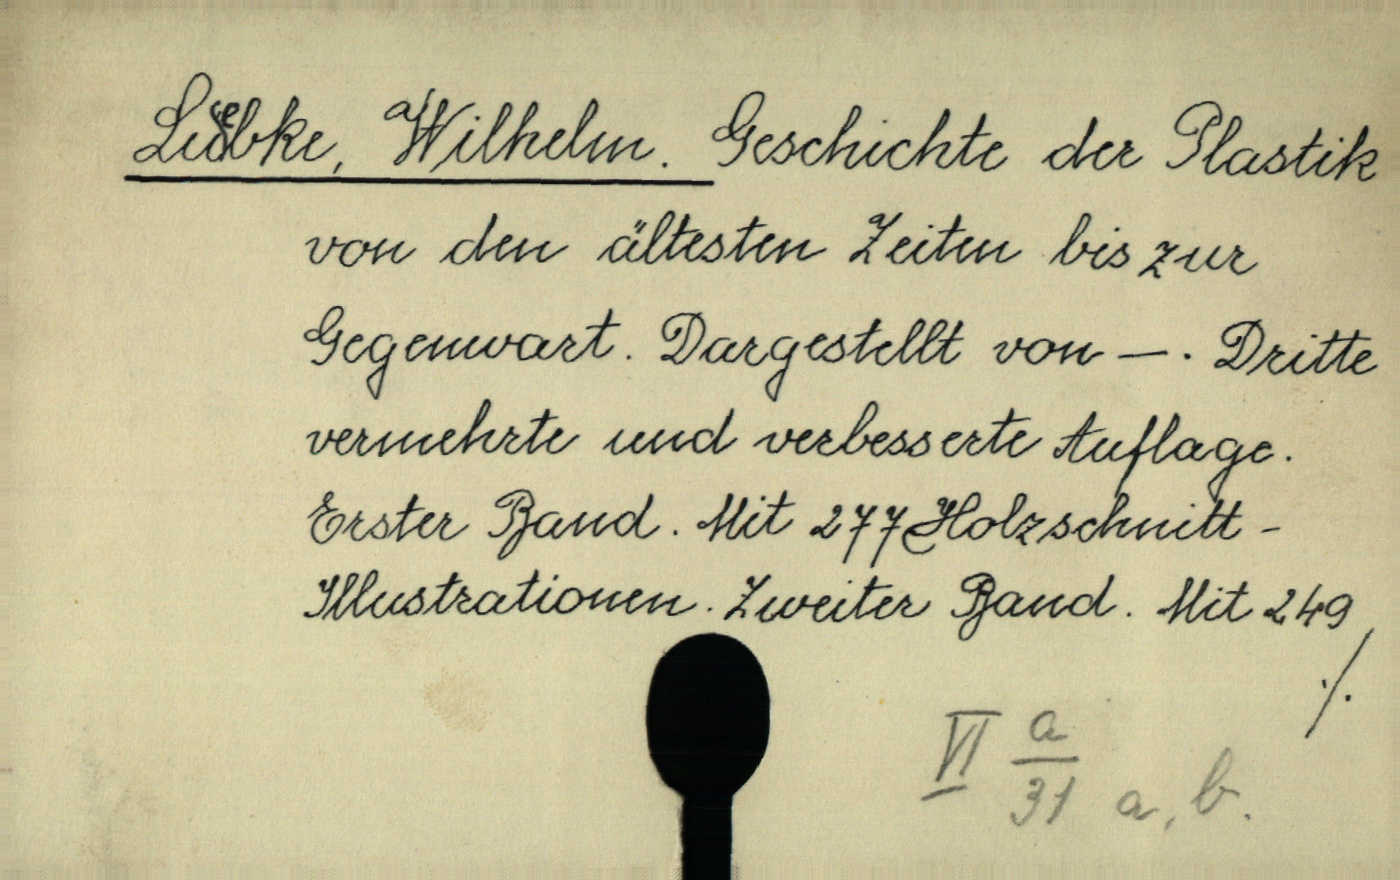 Luebke, Wilhelm. Geschichte der Plastik
von den ältesten Zeiten bis zur
Gegenwart. Dargestellt von —. Dritte
vermehrte und verbesserte Auflage.
Erster Band. Mit 277 Holzschnitt-
Illustrationen. Zweiter Band. Mit 249
./.
VI a/31 a, b.